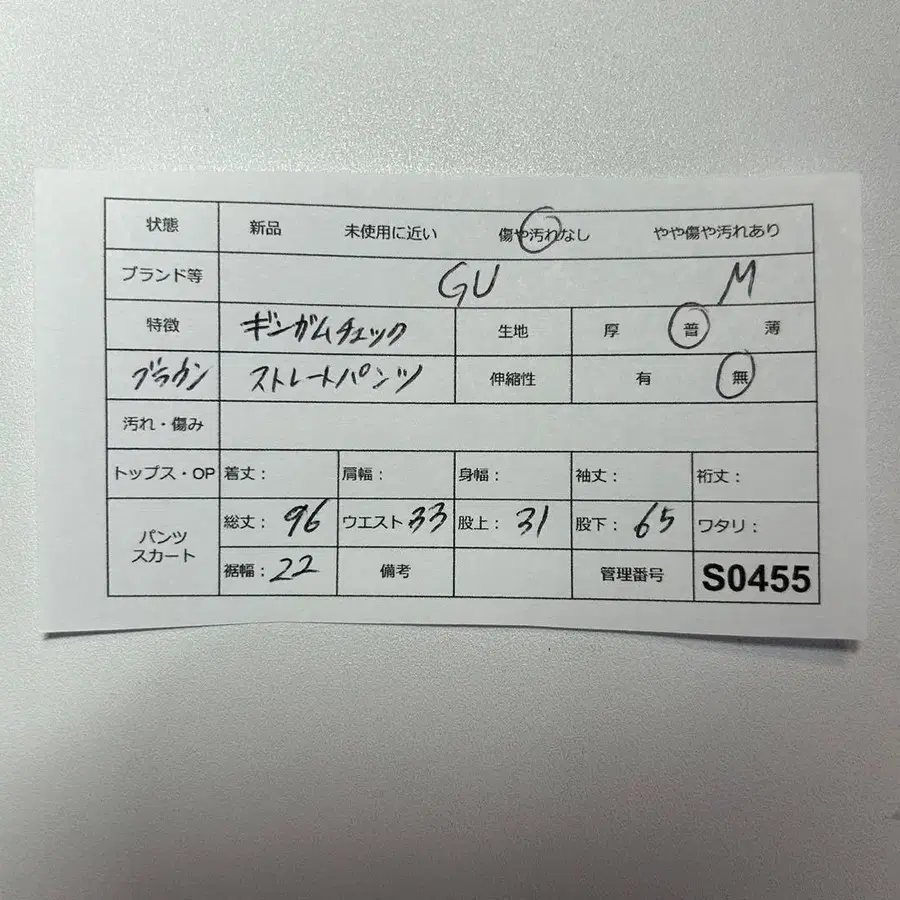 状態 新品 未使用に近い 傷や汚れなし やや傷や汚れあり
ブランド等 GU M
特徴 ギンガムチェック 生地 厚 普 薄
ブラウン ストレートパンツ 伸縮性 有 無
汚れ・傷み
トップス・OP 着丈: 肩幅: 身幅: 袖丈: 裄丈:
パンツ スカート 総丈: 96 ウエスト 33 股上: 31 股下: 65 ワタリ:
裾幅: 22 備考 管理番号 S0455